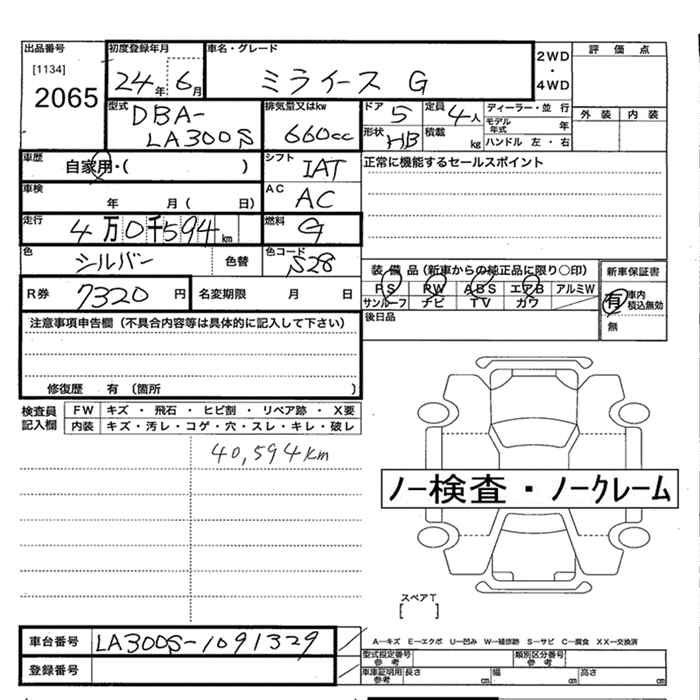 出品番号 初度登録年月 車名・グレード 2WD・4WD 評価点
[1134]
2065 24年6月 ミライース G
型式 DBA-LA300S 排気量又はkw 660cc ドア 5 定員 4人 ディーラー・並行 外装 内装
形状 HB 積載 kg モデル年式 年
ハンドル 左・右
車歴 自家用・( ) シフト IAT 正常に機能するセールスポイント
車検 年 月( 日) AC AC
走行 4万0千594km 燃料 G
色 シルバー 色替 色コード S28
装備品(新車からの純正品に限り○印) 新車保証書
PS PW ABS エアB アルミW 有 車内積込無効
サンルーフ ナビ TV カワ 無
R券 7320円 名変期限 月 日
後日品
注意事項申告欄(不具合内容等は具体的に記入して下さい)
修復歴 有(箇所 )
検査員記入欄 FW キズ・飛石・ヒビ割・リペア跡・X要
内装 キズ・汚レ・コゲ・穴・スレ・キレ・破レ
40,594km
ノー検査・ノークレーム
スペアT
[ ]
車台番号 LA300S-1091329
登録番号
A-キズ E-エクボ U-凹み W-補修跡 S-サビ C-腐食 XX-交換済
型式指定番号 参考 類別区分番号 参考
車庫証明用 参考 長さ cm 幅 cm 高さ cm